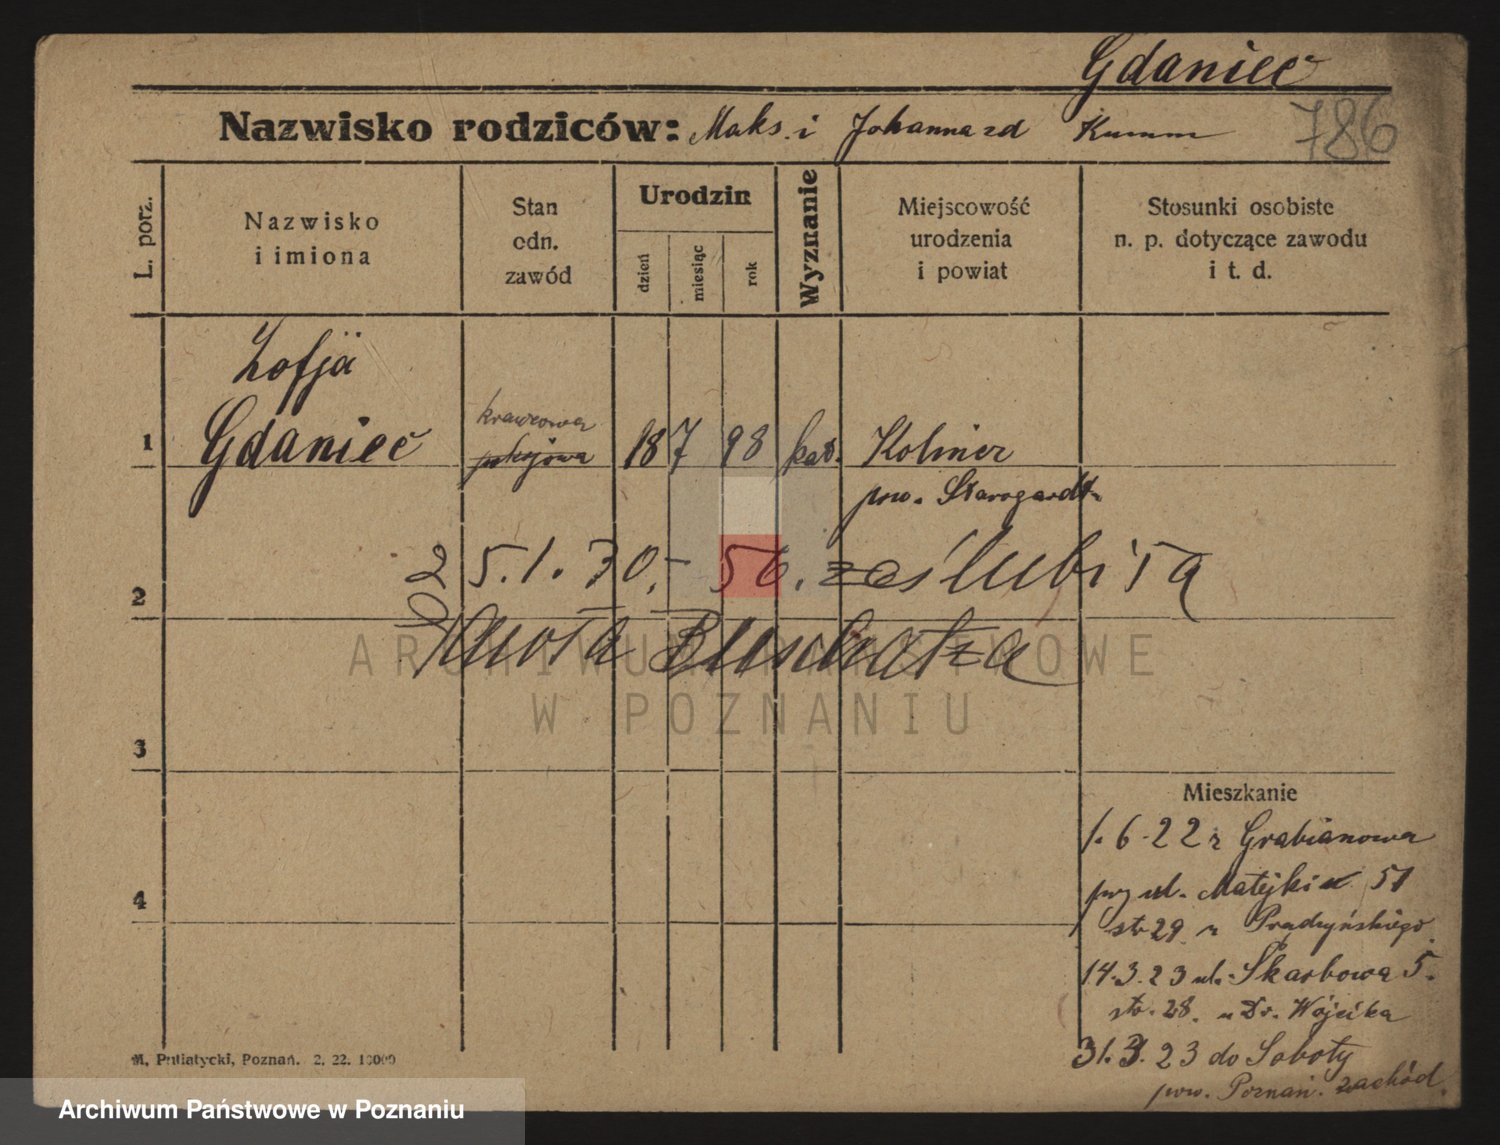 Gdaniec
Nazwisko rodziców: Maks. i Johanna zd Kumm 786
L. porz.
Nazwisko
i imiona
Stan
odn.
zawód
Urodzin
dzień
miesiąc
rok
Wyznanie
Miejscowość
urodzenia
i powiat
Stosunki osobiste
n. p. dotyczące zawodu
i t. d.
Zofja
1 Gdaniec krawcowa pokojowa 18 7 98 kat. Koliner
pow. Starogardt.
2 25.1.30.- 56. zaślubiła
Karola
ARCHIWUM PAŃSTWOWE
W POZNANIU
3
Mieszkanie
1.6.22 z Grabianowa
przy ul. Matejki 51
4
str 29 u Prądzyńskiego
14.3.23 ul. Skarbowa 5.
str. 28. u Dr. Wójcika
31.3.23 do Soboty
pow. Poznań. zachód.
M. Putiatycki, Poznań. 2. 22. 10000
Archiwum Państwowe w Poznaniu